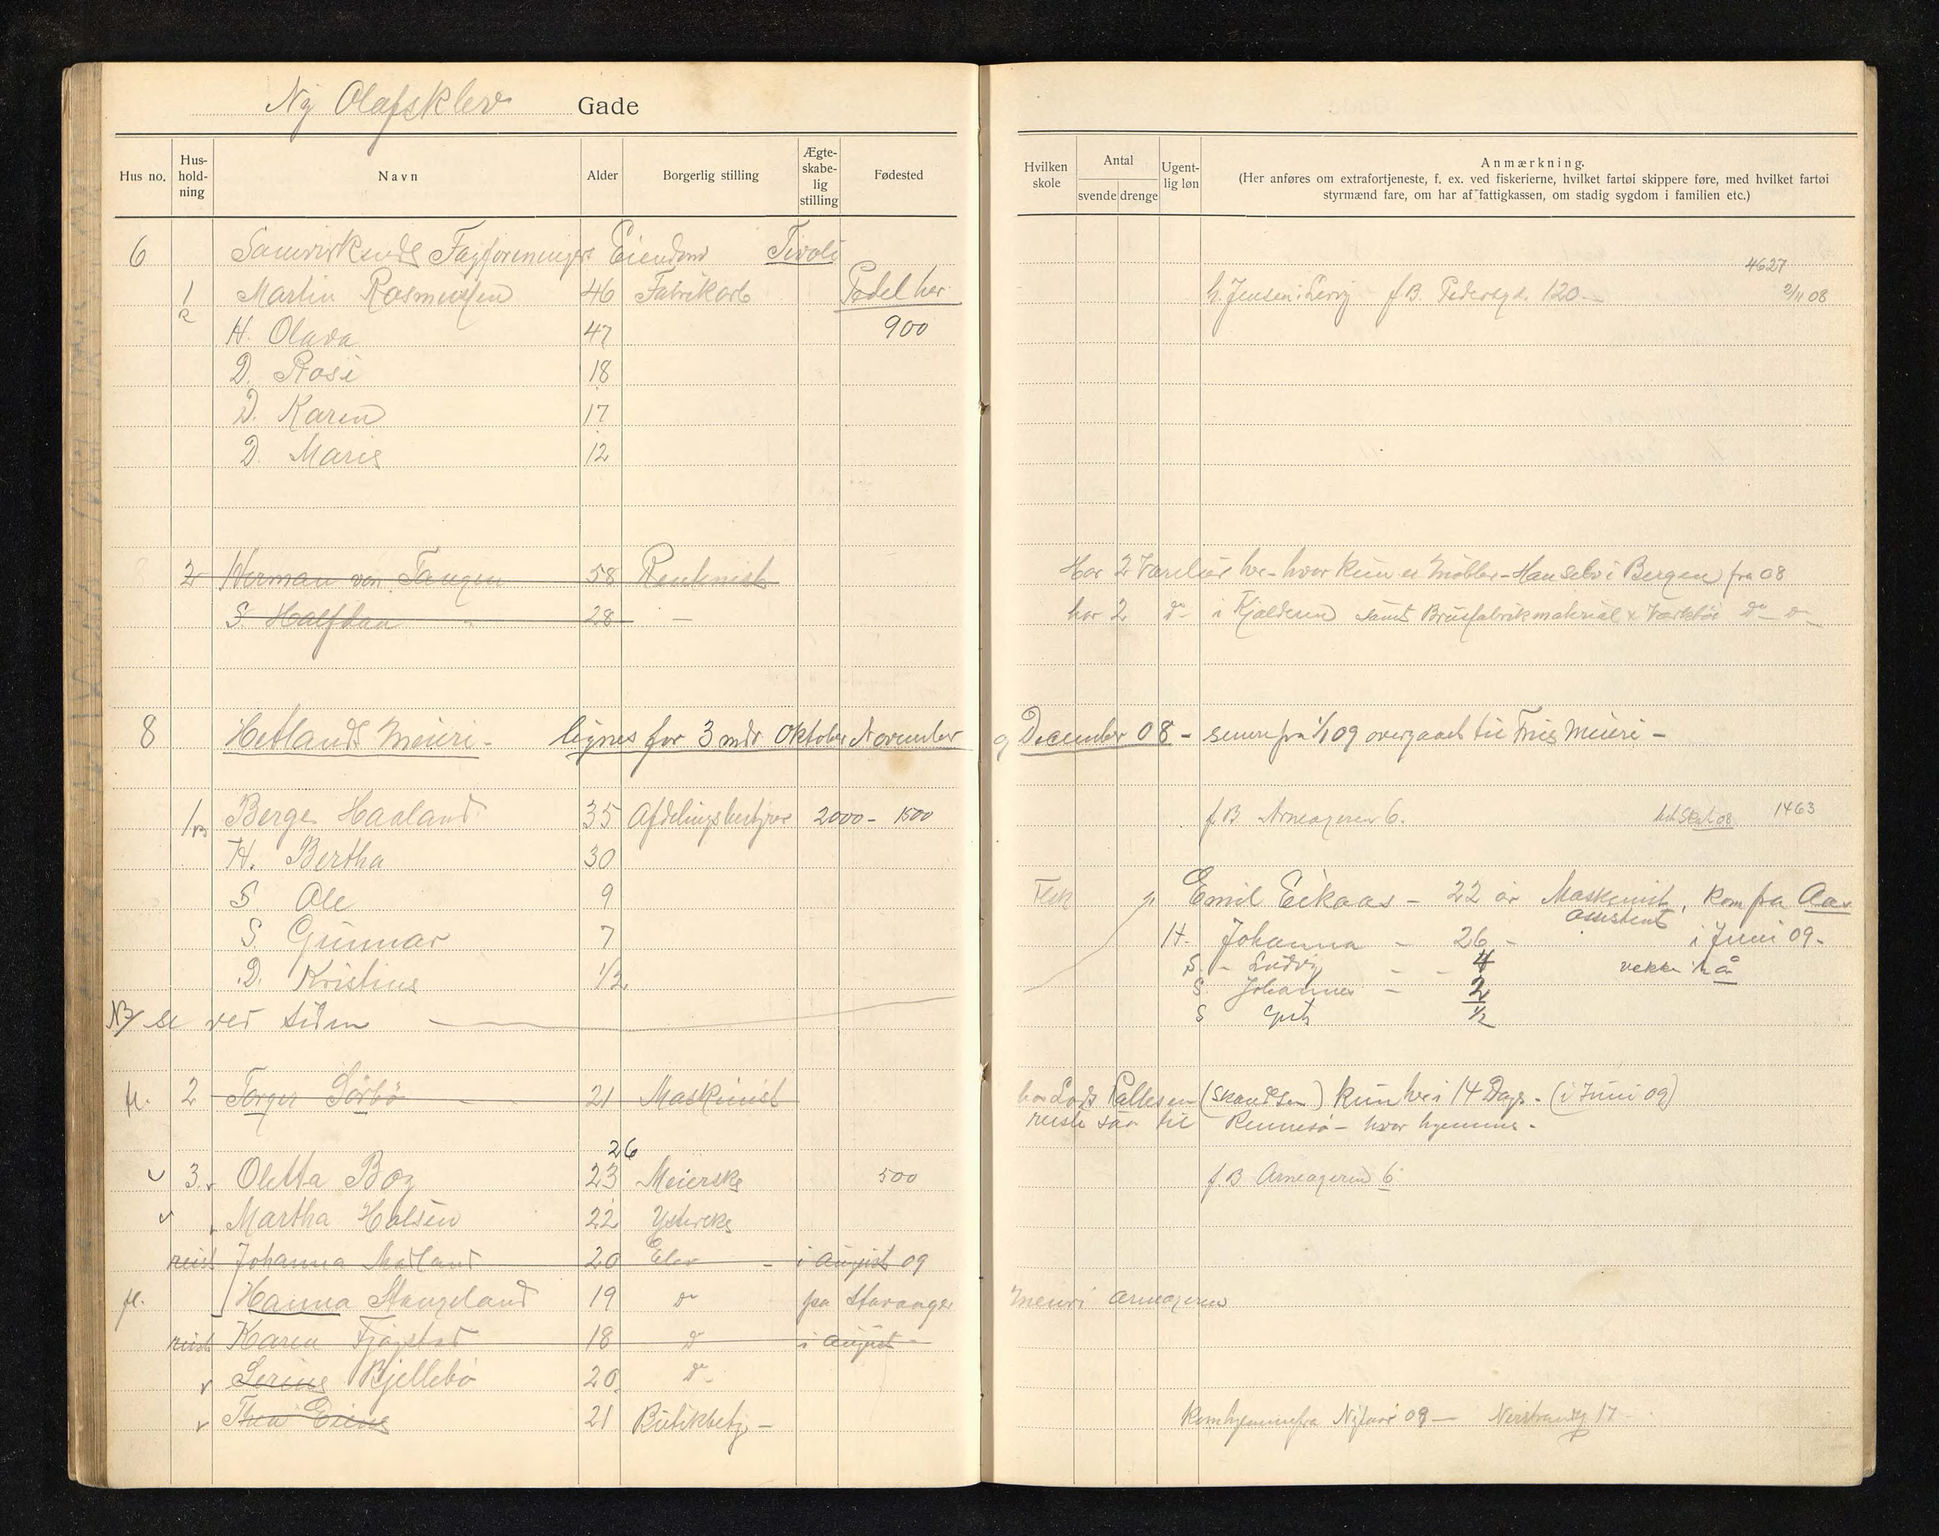 Ny Olafsklev Gade
Hus no. Hus-hold-ning Navn Alder Borgerlig stilling Ægte-skabe-lig stilling Fødested
Hvilken skole Antal svende drenge Ugent-lig løn Anmærkning.
(Her anføres om extrafortjeneste, f. ex. ved fiskerierne, hvilket fartøi skippere føre, med hvilket fartøi
styrmænd fare, om har af fattigkassen, om stadig sygdom i familien etc.)
6 Samvirkende Fagforeningers Eiendom Tivoli
4627
1 Martin Rasmussen 46 Fabrikarb Pedel her h. Jensen i Lervig f. B. Pedersgd. 120 2/11 08
H. Olava 47 900
D. Rosi 18
D. Karen 17
D. Marie 12
2 Herman von Tangen 58 Rentenist Har 2 Værelser her - hvor kun er Møbler - Han selv i Bergen fra 08
S. Halfdan 28 — har 2 do i Kjelderen samt Brusfabrikmaterial & Værktøi do do
8 Hetlands Meieri - lignes for 3 mdr Oktober November og December 08 - senere fra 1/1 09 overgaaet til Fries Meieri -
1 Berge Haaland 35 Afdelingsbestyrer 2000 - 1500 f. B Arneageren 6. 1463
H. Bertha 30
S Ole 9 Emil Eikaas - 22 år Maskinist, kom fra Aa
assistent
S. Gunnar 7 H. Johanna - 26 - i Juni 09 -
S. - Ludvig - - 4
D. Kristine 1/2 S Johannes - 2
S 1/2
NB se ved siden
fl. 2 Torger Sørbø 21 Maskinist hos Lods Pallesen kun her i 14 Dage - (i Juni 09)
reiste saa til Rennesø - hvor hjemme -
26
3. Oletta Bog 23 Meierske 500 f B Arneageren 6
Martha Halsen 22 Ysterske
reist Johanna Matland 20 Elev - i August 09
fl. Hanna Stangeland 19 do fra Stavanger Meieri Arneageren
reist Karen Fjøgstad 18 do i August -
Serine Bjellebø 20 do
Thea Eiene 21 Butikbetj - Kom hjemmefra Nytaar 09 — Nerstrandg 17